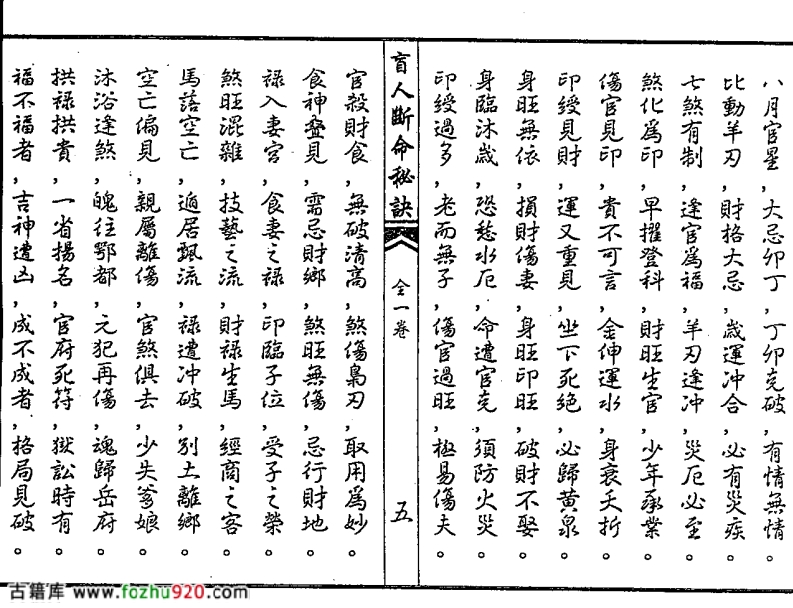 八月官星，大忌卯丁，丁卯克破，有情無情。
比動羊刃，財格大忌，歲運冲合，必有災疾。
七煞有制，逢官爲福，羊刃逢冲，災厄必至。
煞化爲印，早擢登科，財旺生官，少年承業。
傷官見印，貴不可言，金伸運水，身衰夭折。
印綬見財，運又重見，坐下死絕，必歸黄泉。
身旺無依，損財傷妻，身旺印旺，破財不娶。
身臨沐歲，恐愁水厄，命遭官克，須防火災。
印綬過多，老而無子，傷官過旺，極易傷夫。
盲人斷命秘訣 全一卷 五
官殺財食，無破清高，煞傷梟刃，取用爲妙。
食神疊見，需忌財鄉，煞旺無傷，忌行財地。
禄入妻宮，食妻之禄，印臨子位，受子之榮。
煞旺混雜，技藝之流，財禄生馬，經商之客。
馬落空亡，遁居飄流，禄遭冲破，別土離鄉。
空亡偏見，親屬離傷，官煞俱去，少失爹娘。
沐浴逢煞，魄往鄂都，元犯再傷，魂歸岳府。
拱禄拱貴，一省揚名，官府死符，獄訟時有。
福不福者，吉神遭凶，成不成者，格局見破。
古籍库 www.fozhu920.com